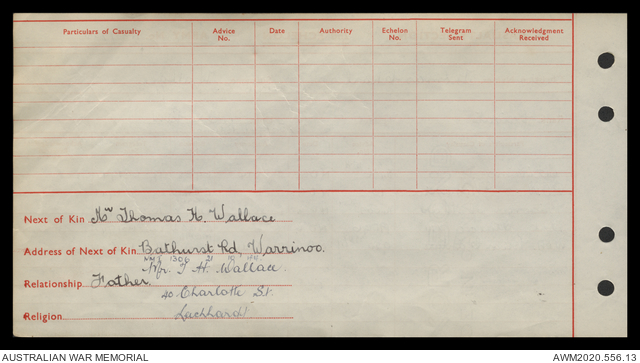 Particulars of Casualty
Advice No.
Date
Authority
Echelon No.
Telegram Sent
Acknowledgment Received
Next of Kin Mr Thomas H. Wallace
Address of Next of Kin Bathurst Rd, Warrimoo.
Mr. T. H. Wallace.
Relationship Father.
20 Charlotte St.
Religion Leichhardt
AUSTRALIAN WAR MEMORIAL
AWM2020.556.13